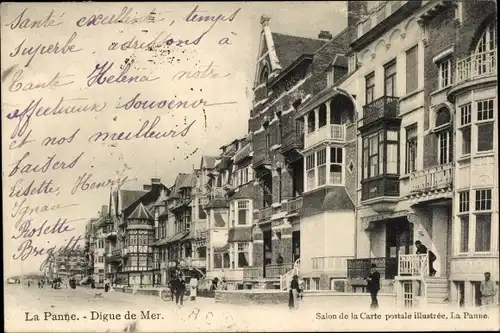 Santé excellente, temps
Superbe, adressons à
Tante Helena notre
affectueux Souvenir
et nos meilleurs
baisers
Lisette, Henry
Ignace
Rosette
Brigitte
La Panne. - Digue de Mer.
Salon de la Carte postale illustrée, La Panne.